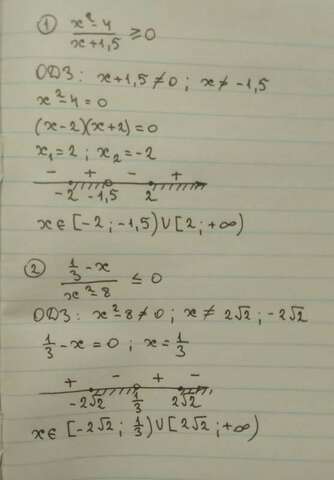 1) (x² - 4)/(x + 1,5) ≥ 0
ОДЗ: x + 1,5 ≠ 0 ; x ≠ -1,5
x² - 4 = 0
(x - 2)(x + 2) = 0
x₁ = 2 ; x₂ = -2
- + - +
-2 -1,5 2
x ∈ [-2 ; -1,5) ∪ [2 ; +∞)
2) (1/3 - x)/(x² - 8) ≤ 0
ОДЗ: x² - 8 ≠ 0 ; x ≠ 2√2 ; -2√2
1/3 - x = 0 ; x = 1/3
+ - + -
-2√2 1/3 2√2
x ∈ [-2√2 ; 1/3) ∪ [2√2 ; +∞)